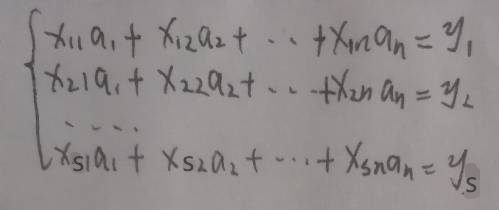 x₁₁a₁ + x₁₂a₂ + ·· + x₁ₙaₙ = y₁
x₂₁a₁ + x₂₂a₂ + ··· + x₂ₙaₙ = y₂
·····
xₛ₁a₁ + xₛ₂a₂ + ··· + xₛₙaₙ = yₛ